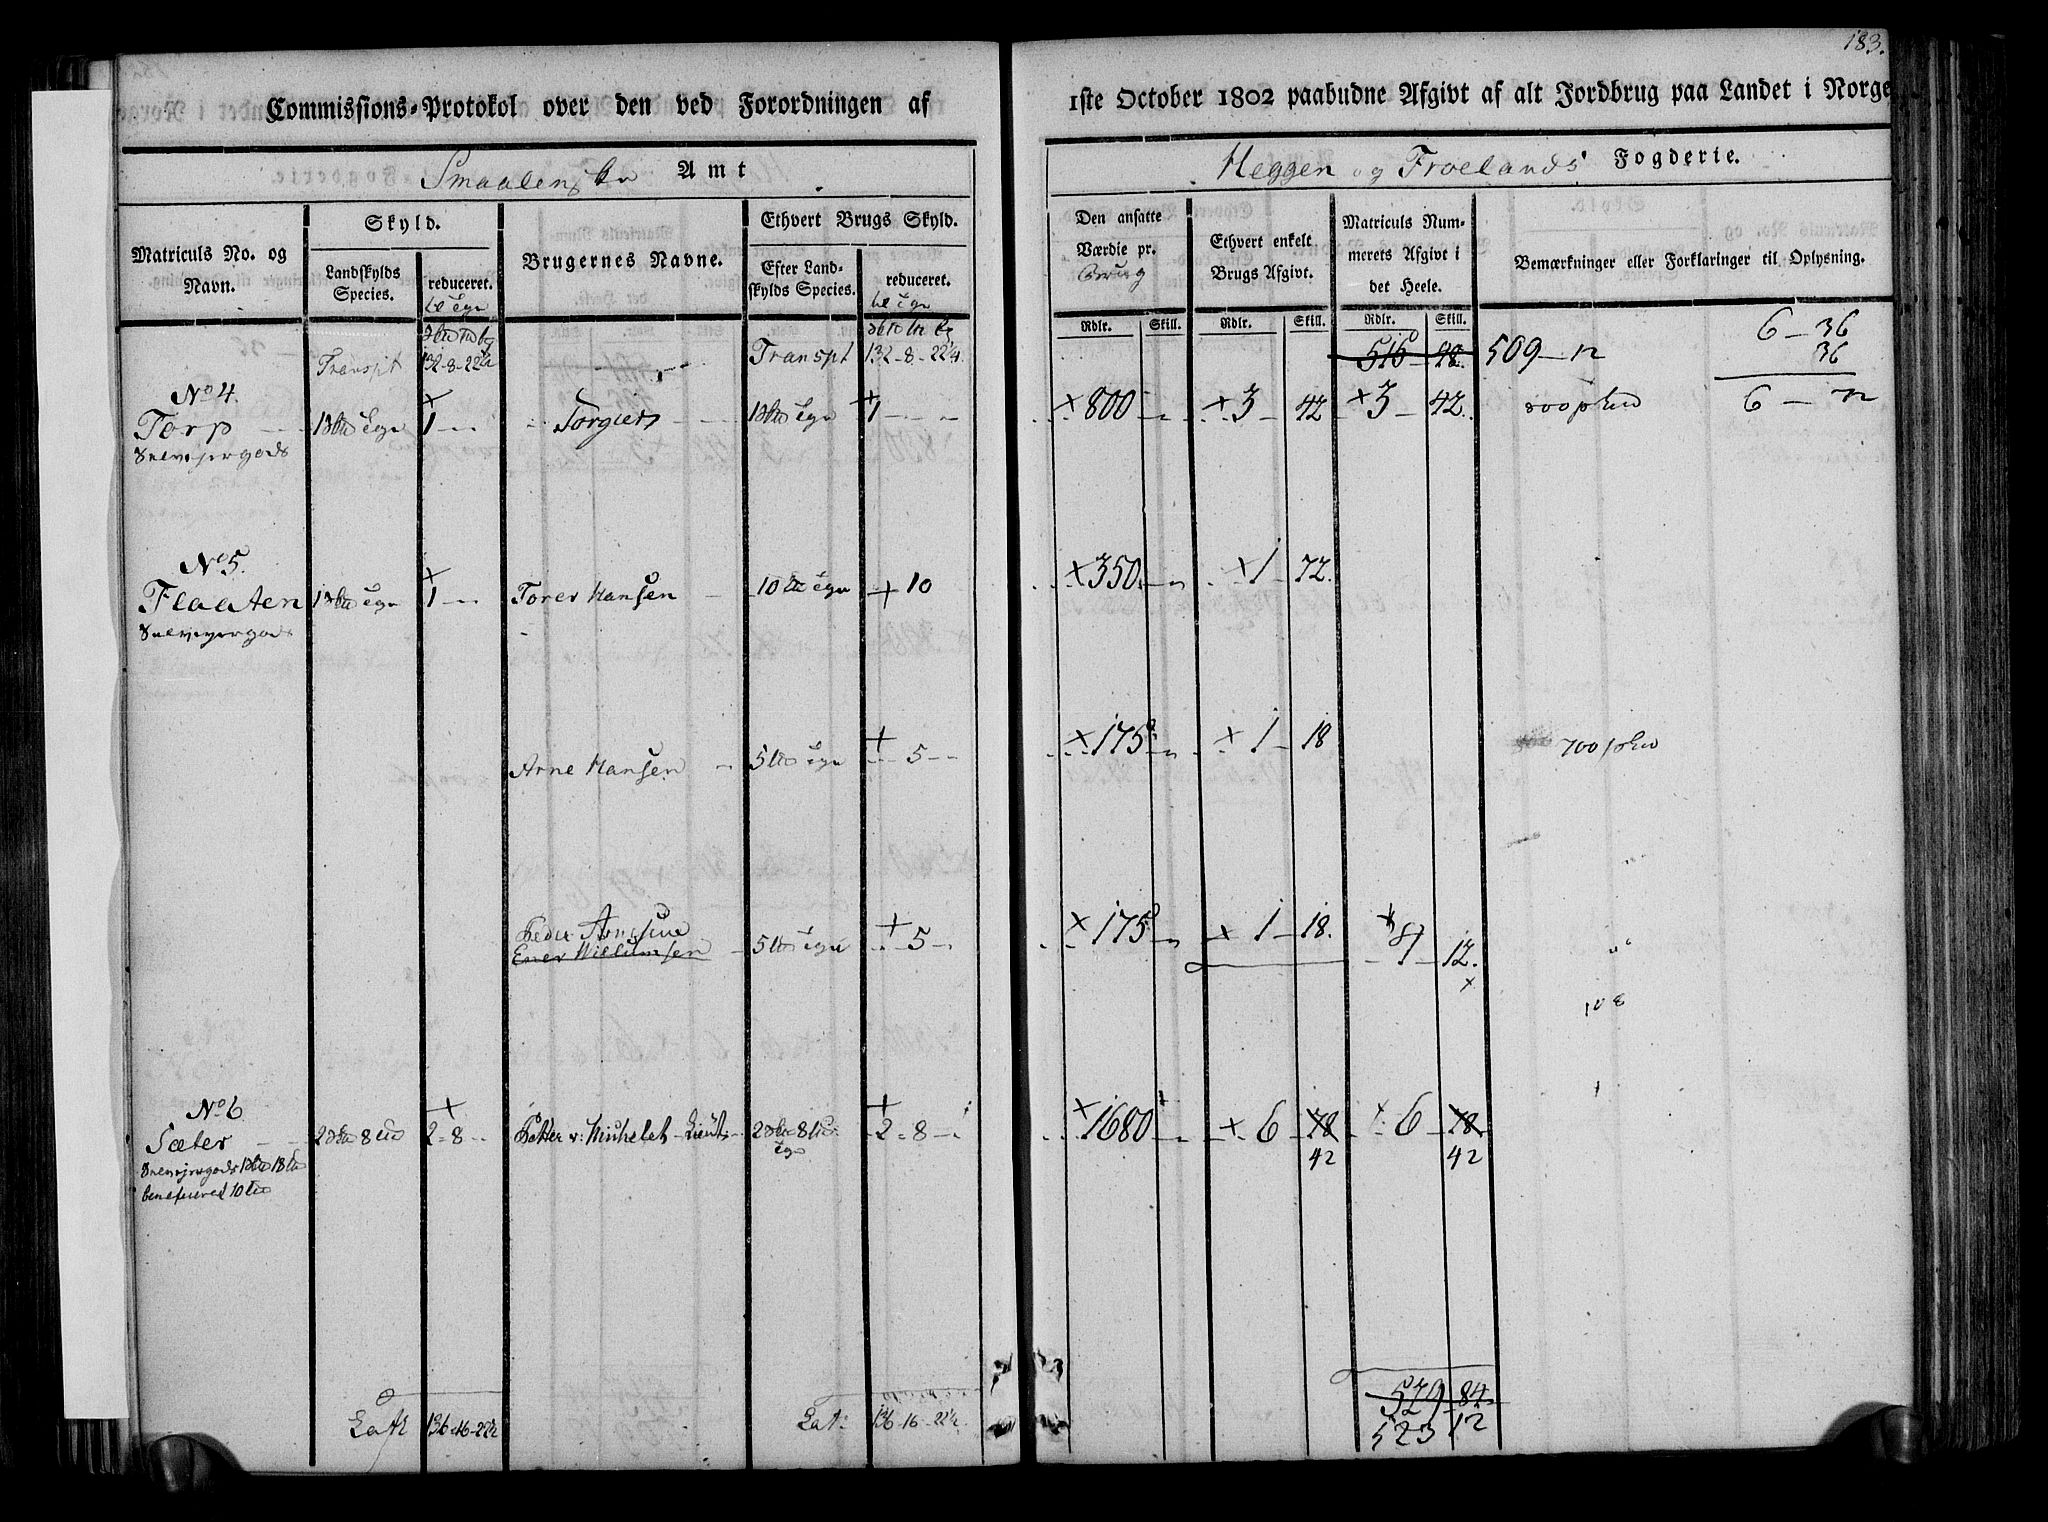 183.
Commissions-Protokol over den ved Forordningen af 1ste October 1802 paabudne Afgivt af alt Jordbrug paa Landet i Norge
Smaalenske Amt
Heggen og Froelands Fogderie.
Matriculs No. og Navn.
Skyld.
Landskylds Species.
reduceret.
Brugernes Navne.
Ethvert Brugs Skyld.
Efter Landskylds Species.
reduceret.
Den ansatte Værdie pr. Brug
Ethvert enkelt Brugs Afgivt.
Matriculs Nummerets Afgivt i det Heele.
Bemærkninger eller Forklaringer til Oplysning.
Rdlr. Skill. Rdlr. Skill. Rdlr. Skill.
Transpt 132-8-22½ Transpt 132-8-22½ 516 48 509-12 6-36
36
6-72
No 4.
Torp 1 1 Torgiers 1 1 800 3 42 3 42
No 5.
Flaaten 1 1 Torer Hansen 10 10 350 1 72
Arne Hansen 5 5 175 1 18 700
Peder Arnesen
Ener Willumsen 5 5 175 1 18 4 12
108
No 6
Sæter 2 8 2-8 Petter v: Michelet Lieut 2 8 2-8 1680 6 78 6 78
42 42
Lat 136-16-22½ Lat 136-16-22½ 529 84
523 12